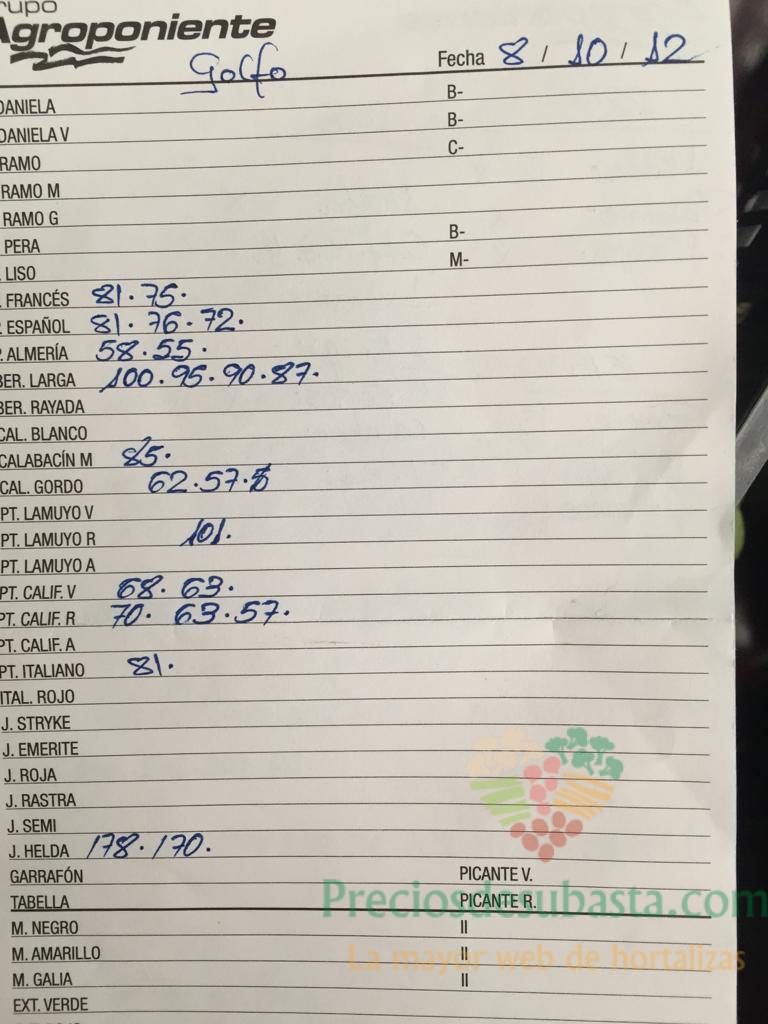 rupo
Agroponiente
Golfo
Fecha 8 / 10 / 12
DANIELA B-
DANIELA V B-
RAMO C-
RAMO M
RAMO G
PERA B-
. LISO M-
. FRANCÉS 81.75.
. ESPAÑOL 81.76.72.
. ALMERÍA 58.55.
BER. LARGA 100.95.90.87.
BER. RAYADA
CAL. BLANCO
CALABACÍN M 85.
CAL. GORDO 62.57.
PT. LAMUYO V
PT. LAMUYO R 101.
PT. LAMUYO A
PT. CALIF. V 68. 63.
PT. CALIF. R 70. 63.57.
PT. CALIF. A
PT. ITALIANO 81.
ITAL. ROJO
J. STRYKE
J. EMERITE
J. ROJA
J. RASTRA
J. SEMI
J. HELDA 178.170.
GARRAFÓN PICANTE V.
TABELLA PICANTE R.
Preciosdesubasta.com
M. NEGRO II
M. AMARILLO II
La mayor web de hortalizas
M. GALIA II
EXT. VERDE